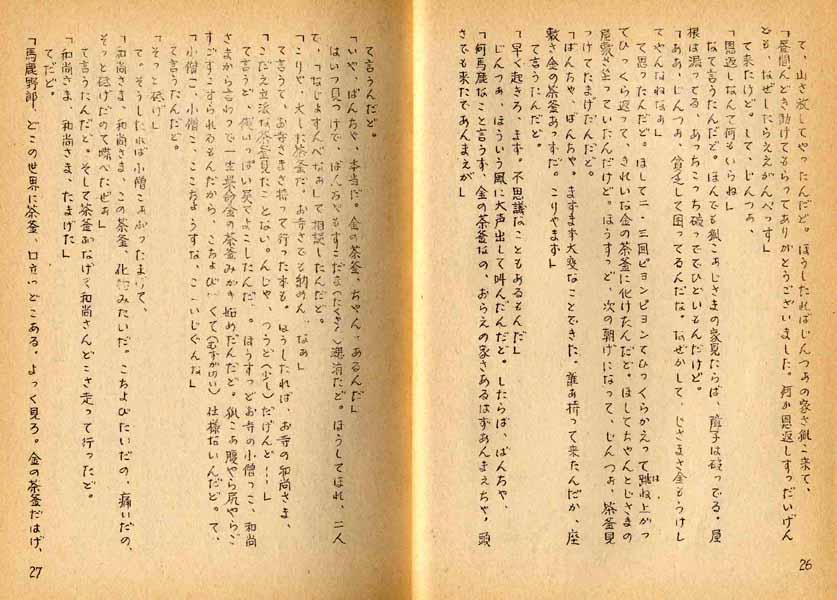 て、山さ放してやったんだど。ほうしたればじんつぁの家さ狐こ来て、
「昼間んどき助けてもらってありがとうございました。何か恩返しすっだいげん
ども、なぜしたらええがんべっす」
て来たけど。して、じんつぁ、
「恩返しなんて何もいらね」
なて言うたんだど。ほんでも狐こぁじさまの家見たらば、障子は破ってる。屋
根は漏ってる、あっちこっち破ってでひどいもんだけど。
「ああ、じんつぁ、貧乏して困ってるんだな。なぜかして、じさまさ金もうけし
てやんねねなぁ」
て思ったんだど。ほして二・三回ピョンピョンてひっくらかえって跳ね上がっ
は
てひっくら返って、きれいな金の茶釜に化けたんだど。ほしてちゃんとじさまの
屋敷さ坐っていたんだけど。ほうすっど、次の朝げになって、じんつぁ、茶釜見
つけてたまげたんだど。
「ばんちゃ、ばんちゃ。まずまず大変なことできた。誰ぁ持って来たんだか、座
敷さ金の茶釜あっす。こりゃまず」
て言うたんだど。
「早く起きろ、まず。不思議なこともあるもんだ」
じんつぁ、ほういう風に大声出して叫んだんだど。したらば、ばんちゃ、
「何馬鹿なこと言うず、金の茶釜なの、おらえの家さあるはずあんまえちゃ。頭
さでも来たであんまえが」
26
て言うんだど。
「いや、ばんちゃ、本当だ。金の茶釜、ちゃんとあるんだ」
はいつ見つけで、ばんちゃもすこだま(たくさん)魂消だど。ほうしてほれ、二人
て、「なじょすんべなぁ」して相談したんだど。
「こりゃ、大した茶釜だ。お寺さでも納めんなねなぁ」
て言うて、お寺さまさ持って行った ども。ほうしたれば、お寺の和尚さま、
「こだえ立派な茶釜見たことない。んじゃ、つうど(少し)だげんど……」
て言うど、褒いっぱい呉でよこしたんだ。ほうすっどお寺の小僧っこ、和尚
さまから言わって一生懸命金の茶釜みがき始めだんだど。狐こぁ腹やら尻やらご
すごすこすられるもんだから、こちょびたくて(むずがゆい)仕様ないんだど。て、
「小僧こ、小僧こ、ここちょうすな、こ いじくんな」
て言うたんだど。
「そっと砥げ」
て。そうしたれば小僧こぁぶったまげて、
「和尚さま、和尚さま、この茶釜、化物みたいだ。こちょびたいだの、痛いだの、
そっと砥げだのて喋べたぜぁ」
て言うたんだど。そして茶釜ぶなげて和尚さんどこさ走って行ったど。
「和尚さま、和尚さま、たまげた」
てだど。
「馬鹿野郎、どこの世界に茶釜、口立つどこある。よっく見ろ。金の茶釜だはげ、
27